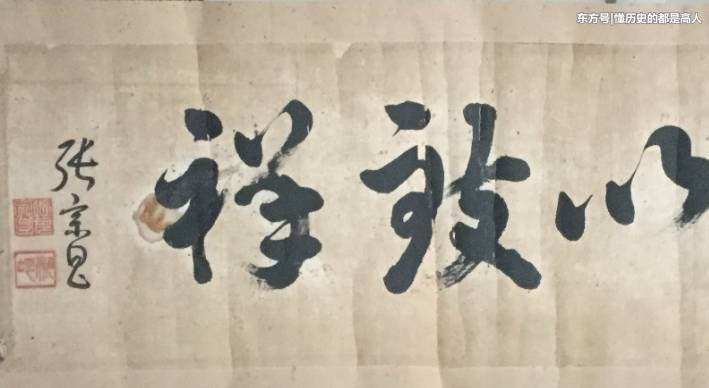 东方号|懂历史的都是高人
以致祥
张宗昌